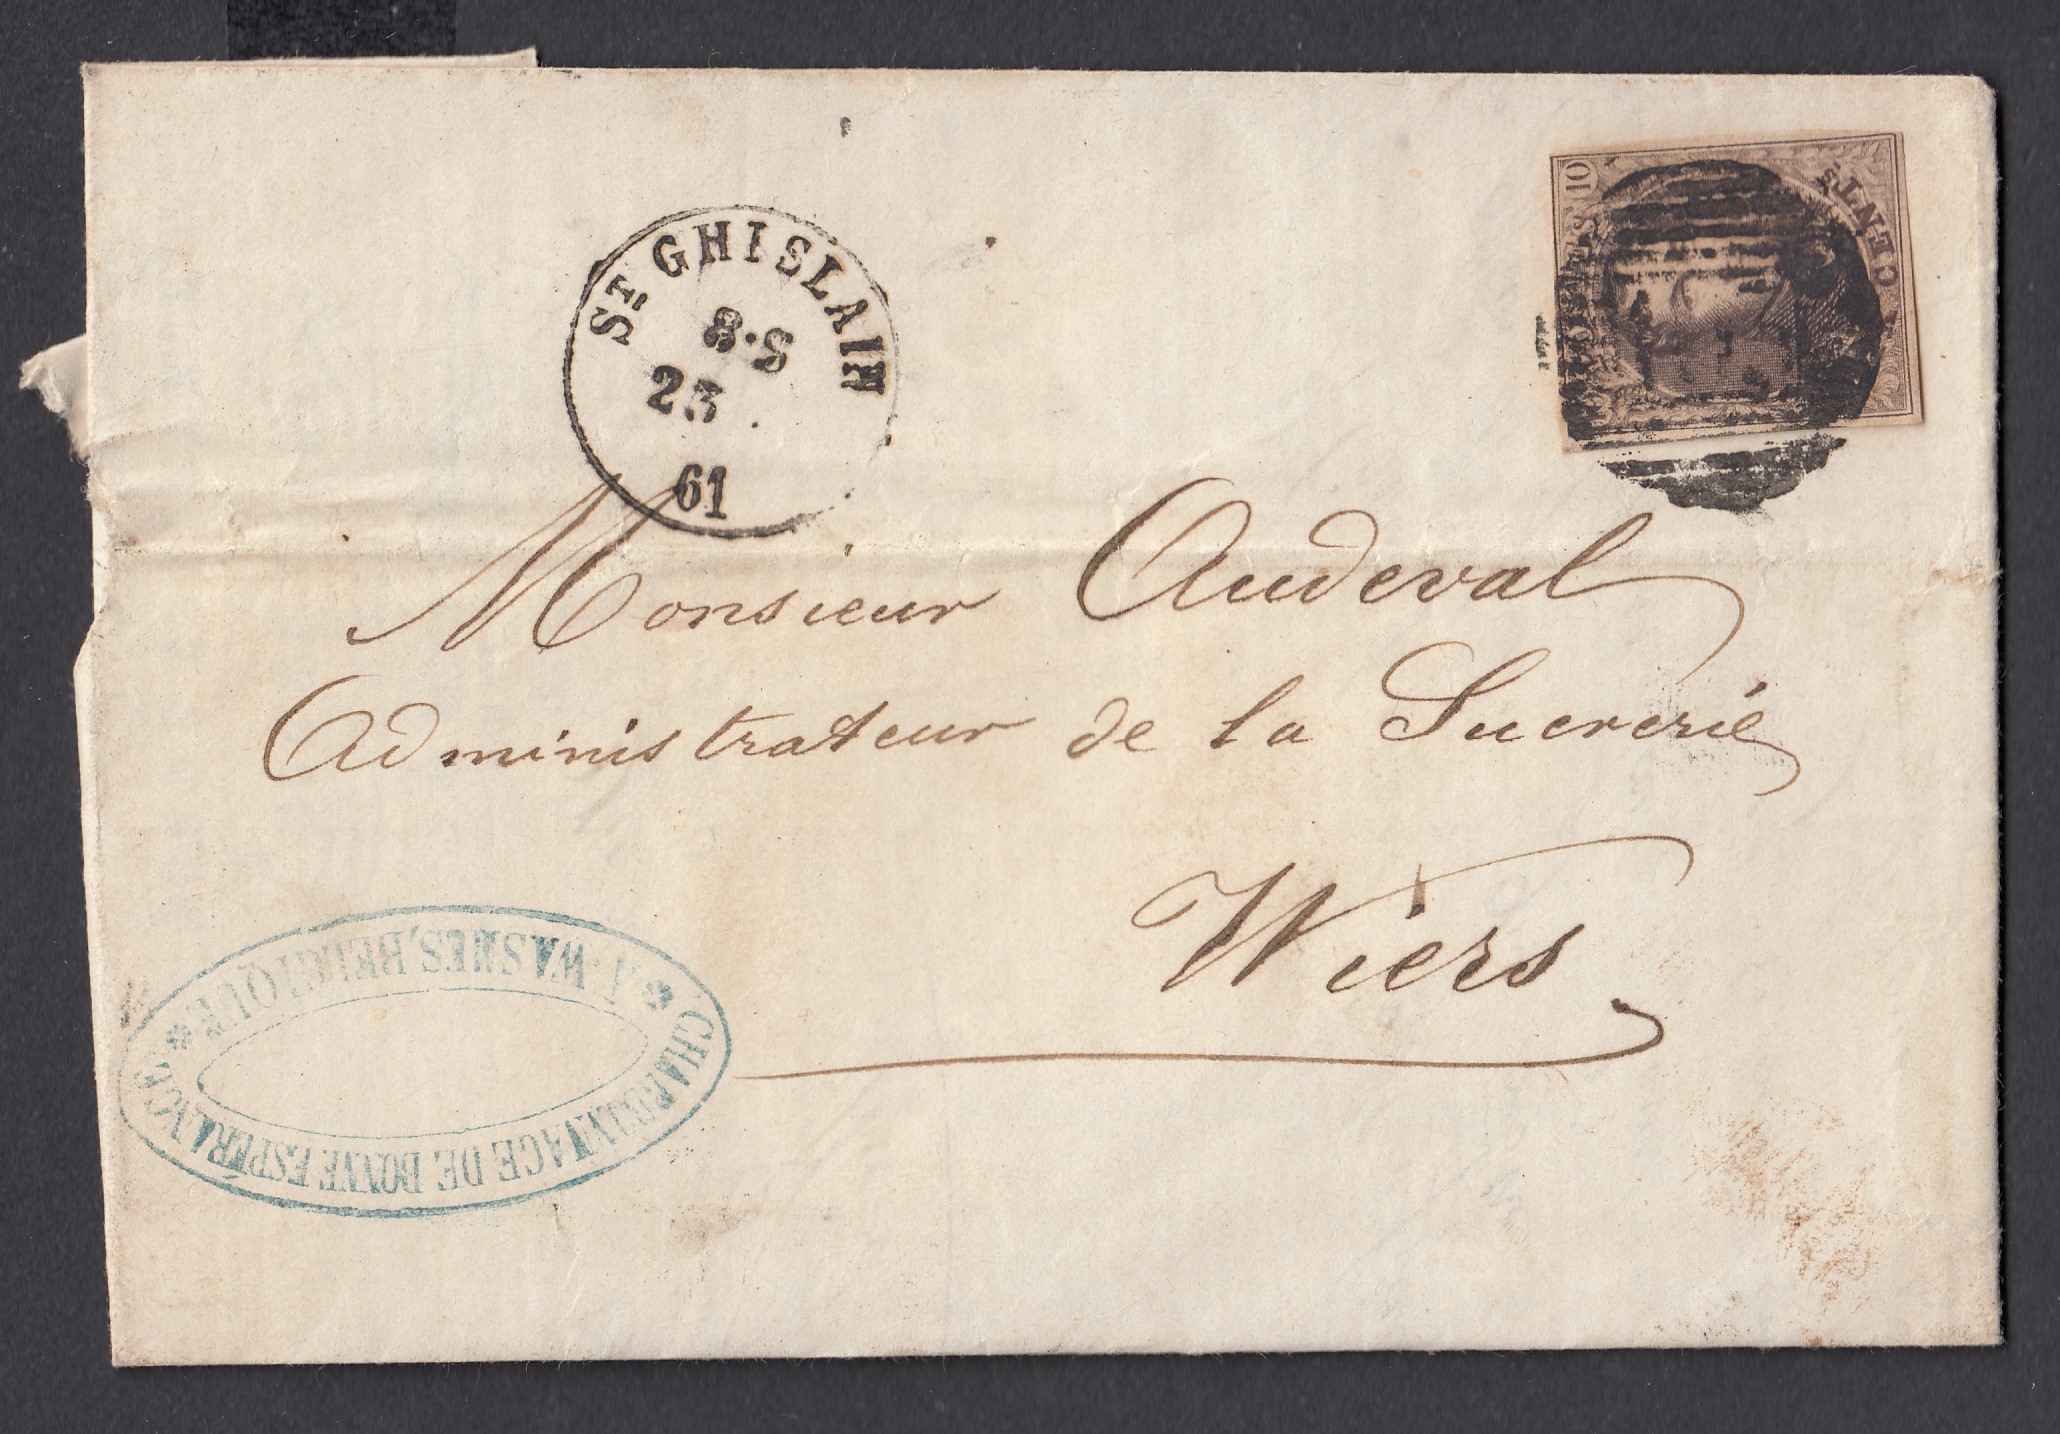 10
CENTS
ST GHISLAIN
8·S
23
61
Monsieur Audeval
Administrateur de la Sucrerie
Wiers
CHARBONNAGE DE BONNE ESPÉRANCE
* A WASMES, BELGIQUE *